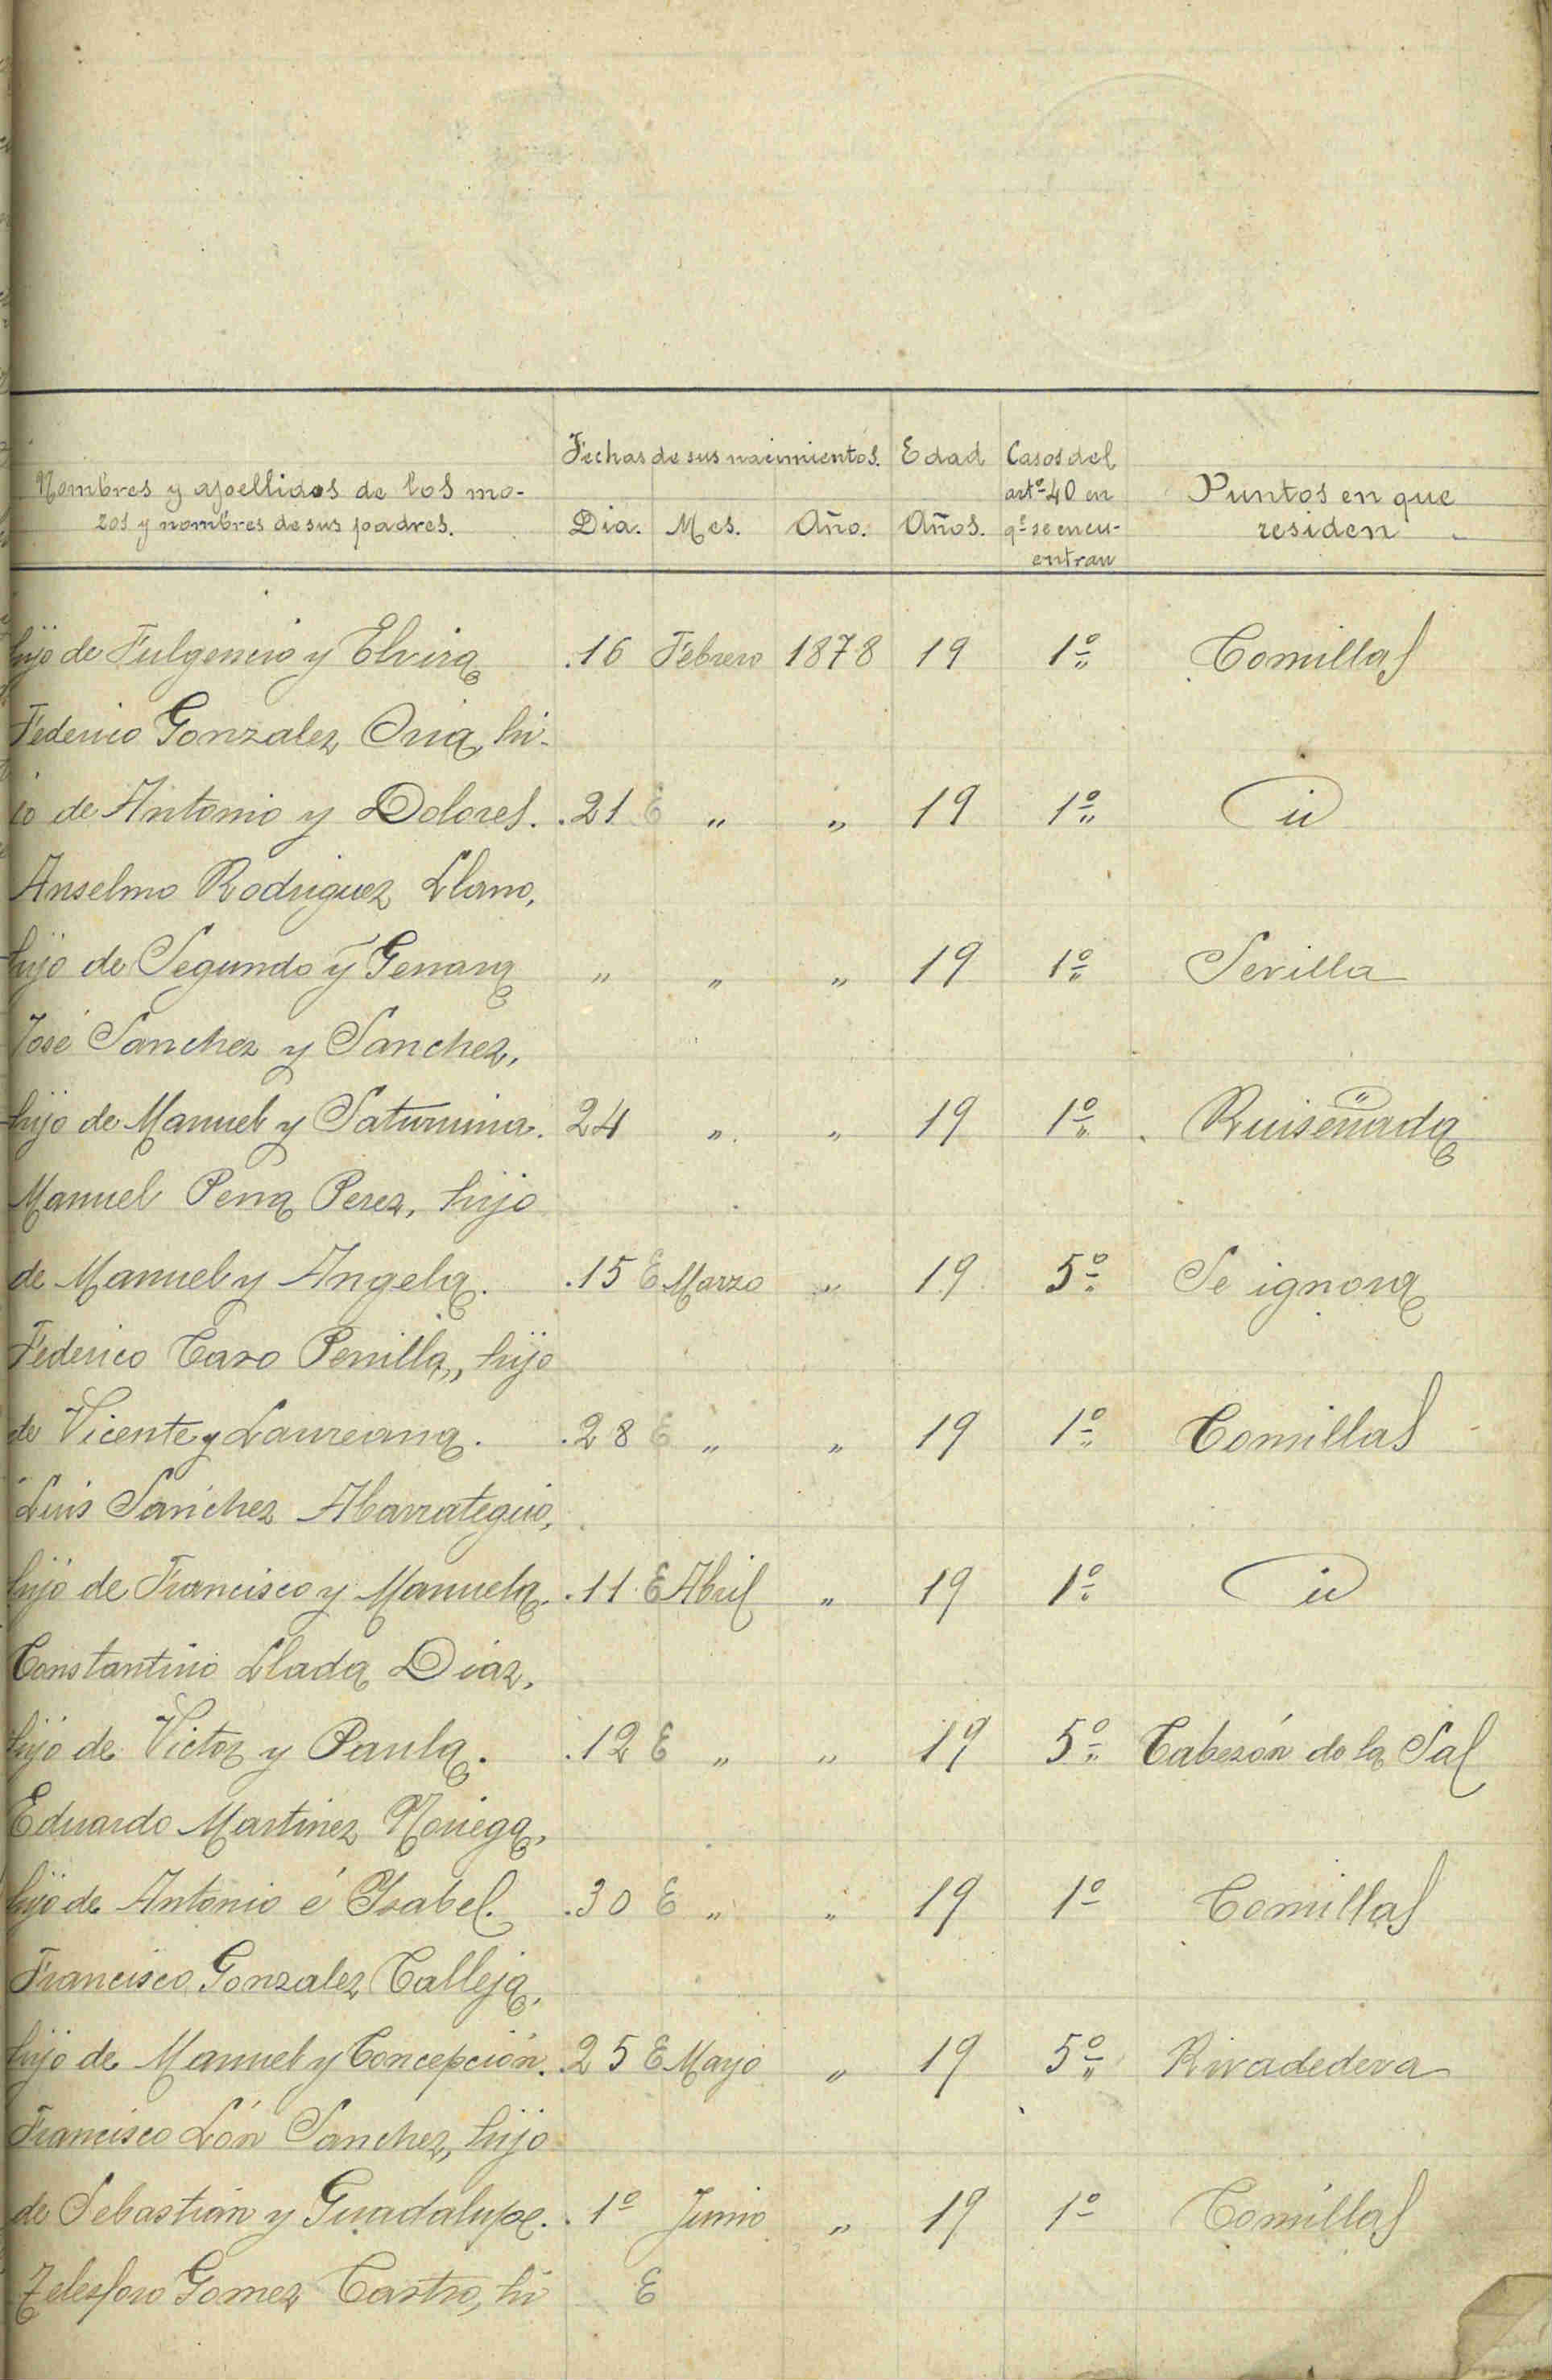 Nombres y apellidos de los mo-
zos y nombres de sus padres.
Fechas de sus nacimientos.
Dia. Mes. Año.
Edad
Años.
Casos del
artº 40 en
qe se encu-
entran
Puntos en que
residen
hijo de Fulgencio y Elvira .16 Febrero 1878 19 1º Comillas
Federico Gonzalez Oria, hi-
jo de Antonio y Dolores. .21 E " " 19 1º id
Anselmo Rodriguez Llano,
hijo de Segundo y Genara " " " 19 1º Sevilla
José Sanchez y Sanchez,
hijo de Manuel y Saturnina. 24 " " 19 1º Ruiseñada
Manuel Pena Perez, hijo
de Manuel y Angela. .15 E Marzo " 19 5º Se ignora
Federico Caro Penilla, hijo
de Vicente y Laureana. .28 E " " 19 1º Comillas
Luis Sanchez Abarrategui,
hijo de Francisco y Manuela. .11 E Abril " 19 1º id
Constantino Llada Diaz,
hijo de Victor y Paula. .12 E " " 19 5º Cabezón de la Sal
Eduardo Martinez Noriega,
hijo de Antonio é Ysabel. .30 E " " 19 1º Comillas
Francisco Gonzalez Calleja,
hijo de Manuel y Concepción. .25 E Mayo " 19 5º Rivadedeva
Francisco Lón Sanchez, hijo
de Sebastián y Guadalupe. .1º Junio " 19 1º Comillas
Telesforo Gomez Castro, hi E